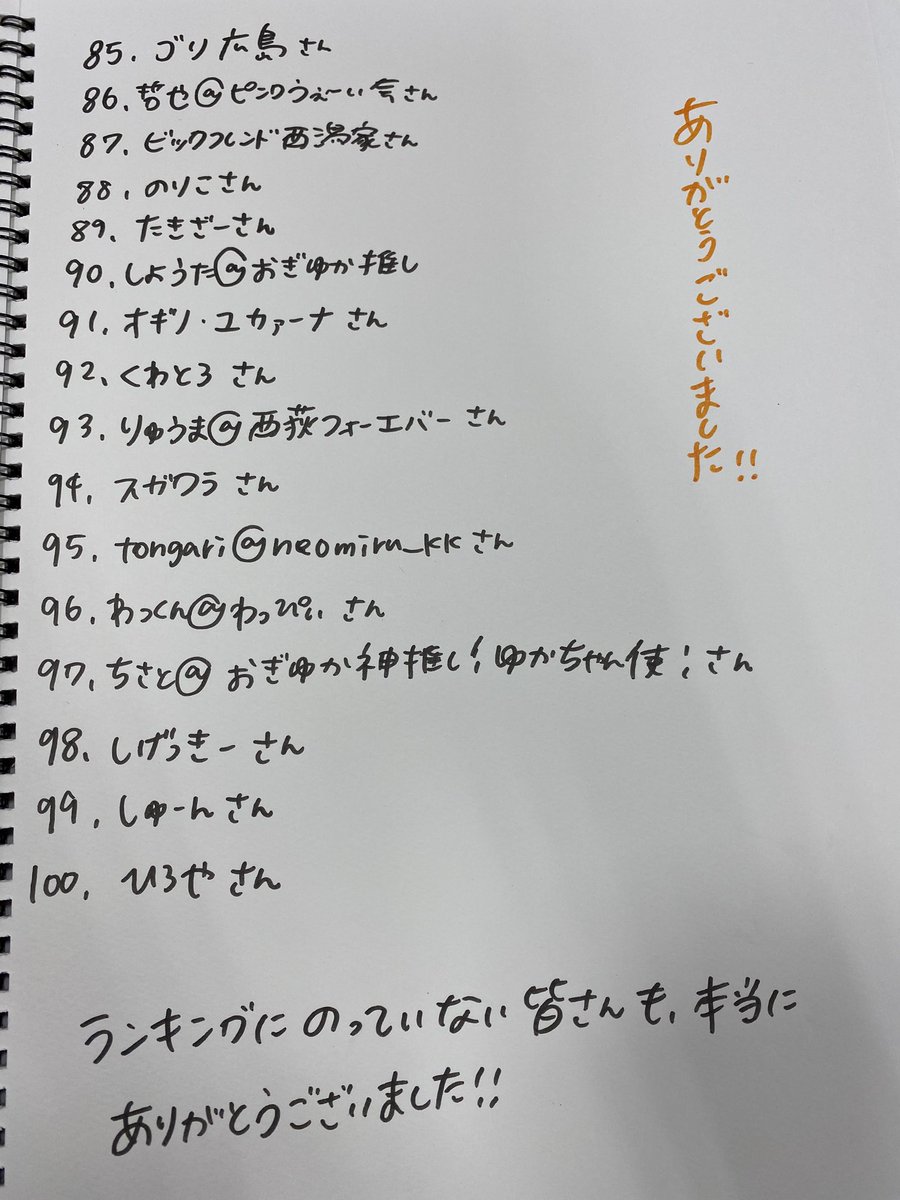 85. ゴリ広島さん
86. 哲や@ピンクうぇーい会さん
87. ビックフレンド西潟家さん
88. のりこさん
89. たきざーさん
90. しようた@おぎゆか推し
91. オギノ・ユカァーナさん
92. くわとろさん
93. りゅうま@西荻フォーエバーさん
94. スガワラさん
95. tongari@neomiru_kkさん
96. わっくん@わっぴぃさん
97. ちさと@おぎゆか神推し!ゆかちゃん使!さん
98. しげっきーさん
99. しゅーんさん
100. ひろやさん
ありがとうございました!!
ランキングにのっていない皆さんも、本当に
ありがとうございました!!